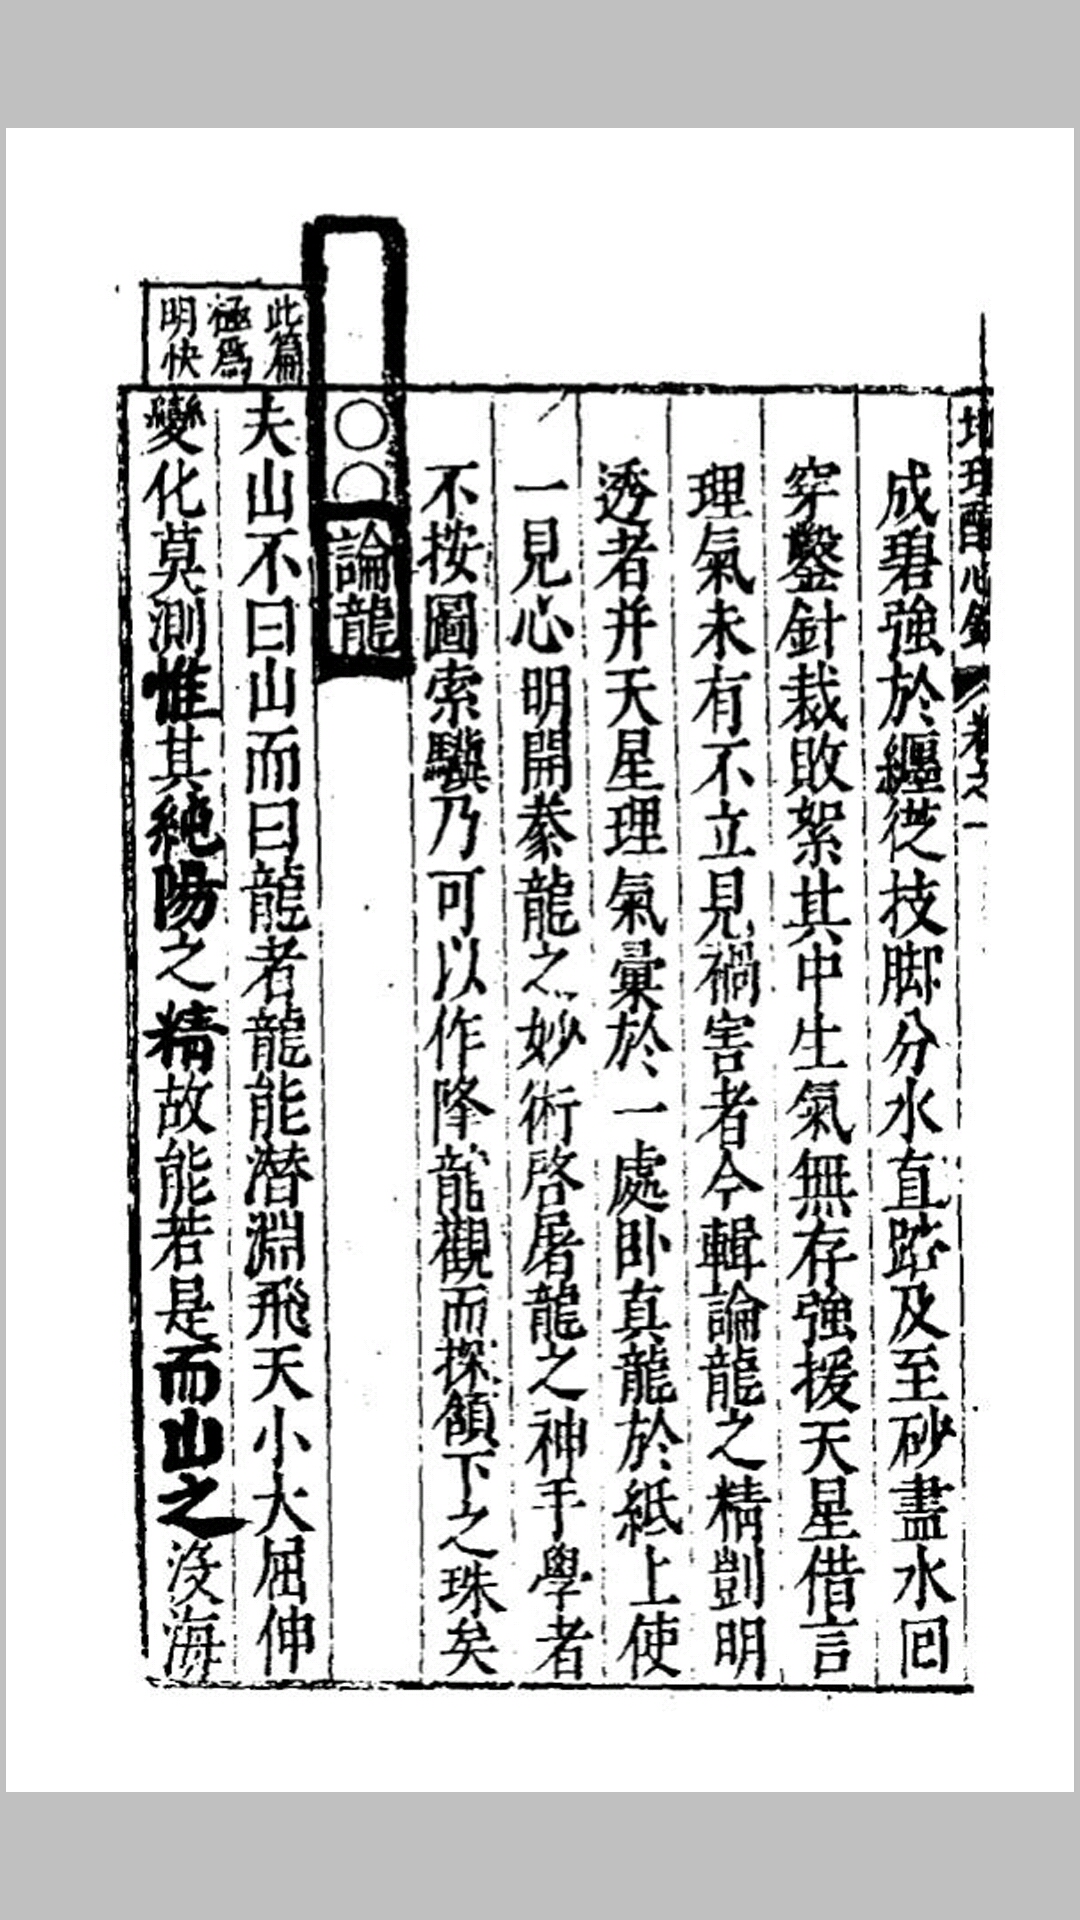 地理酉心録 卷之一
成碧強於纏從技脚分水直跡及至砂盡水回
穿鑿針裁敗絮其中生氣無存強援天星借言
理氣未有不立見禍害者今輯論龍之精剴明
透者并天星理氣彙於一處卧真龍於紙上使
一見心明開豢龍之妙術啓屠龍之神手學者
不按圖索驥乃可以作降龍觀而探頷下之珠矣
○○論龍
此篇
極爲
明快
夫山不曰山而曰龍者龍能潜淵飛天小大屈伸
變化莫測惟其純陽之精故能若是而山之没海